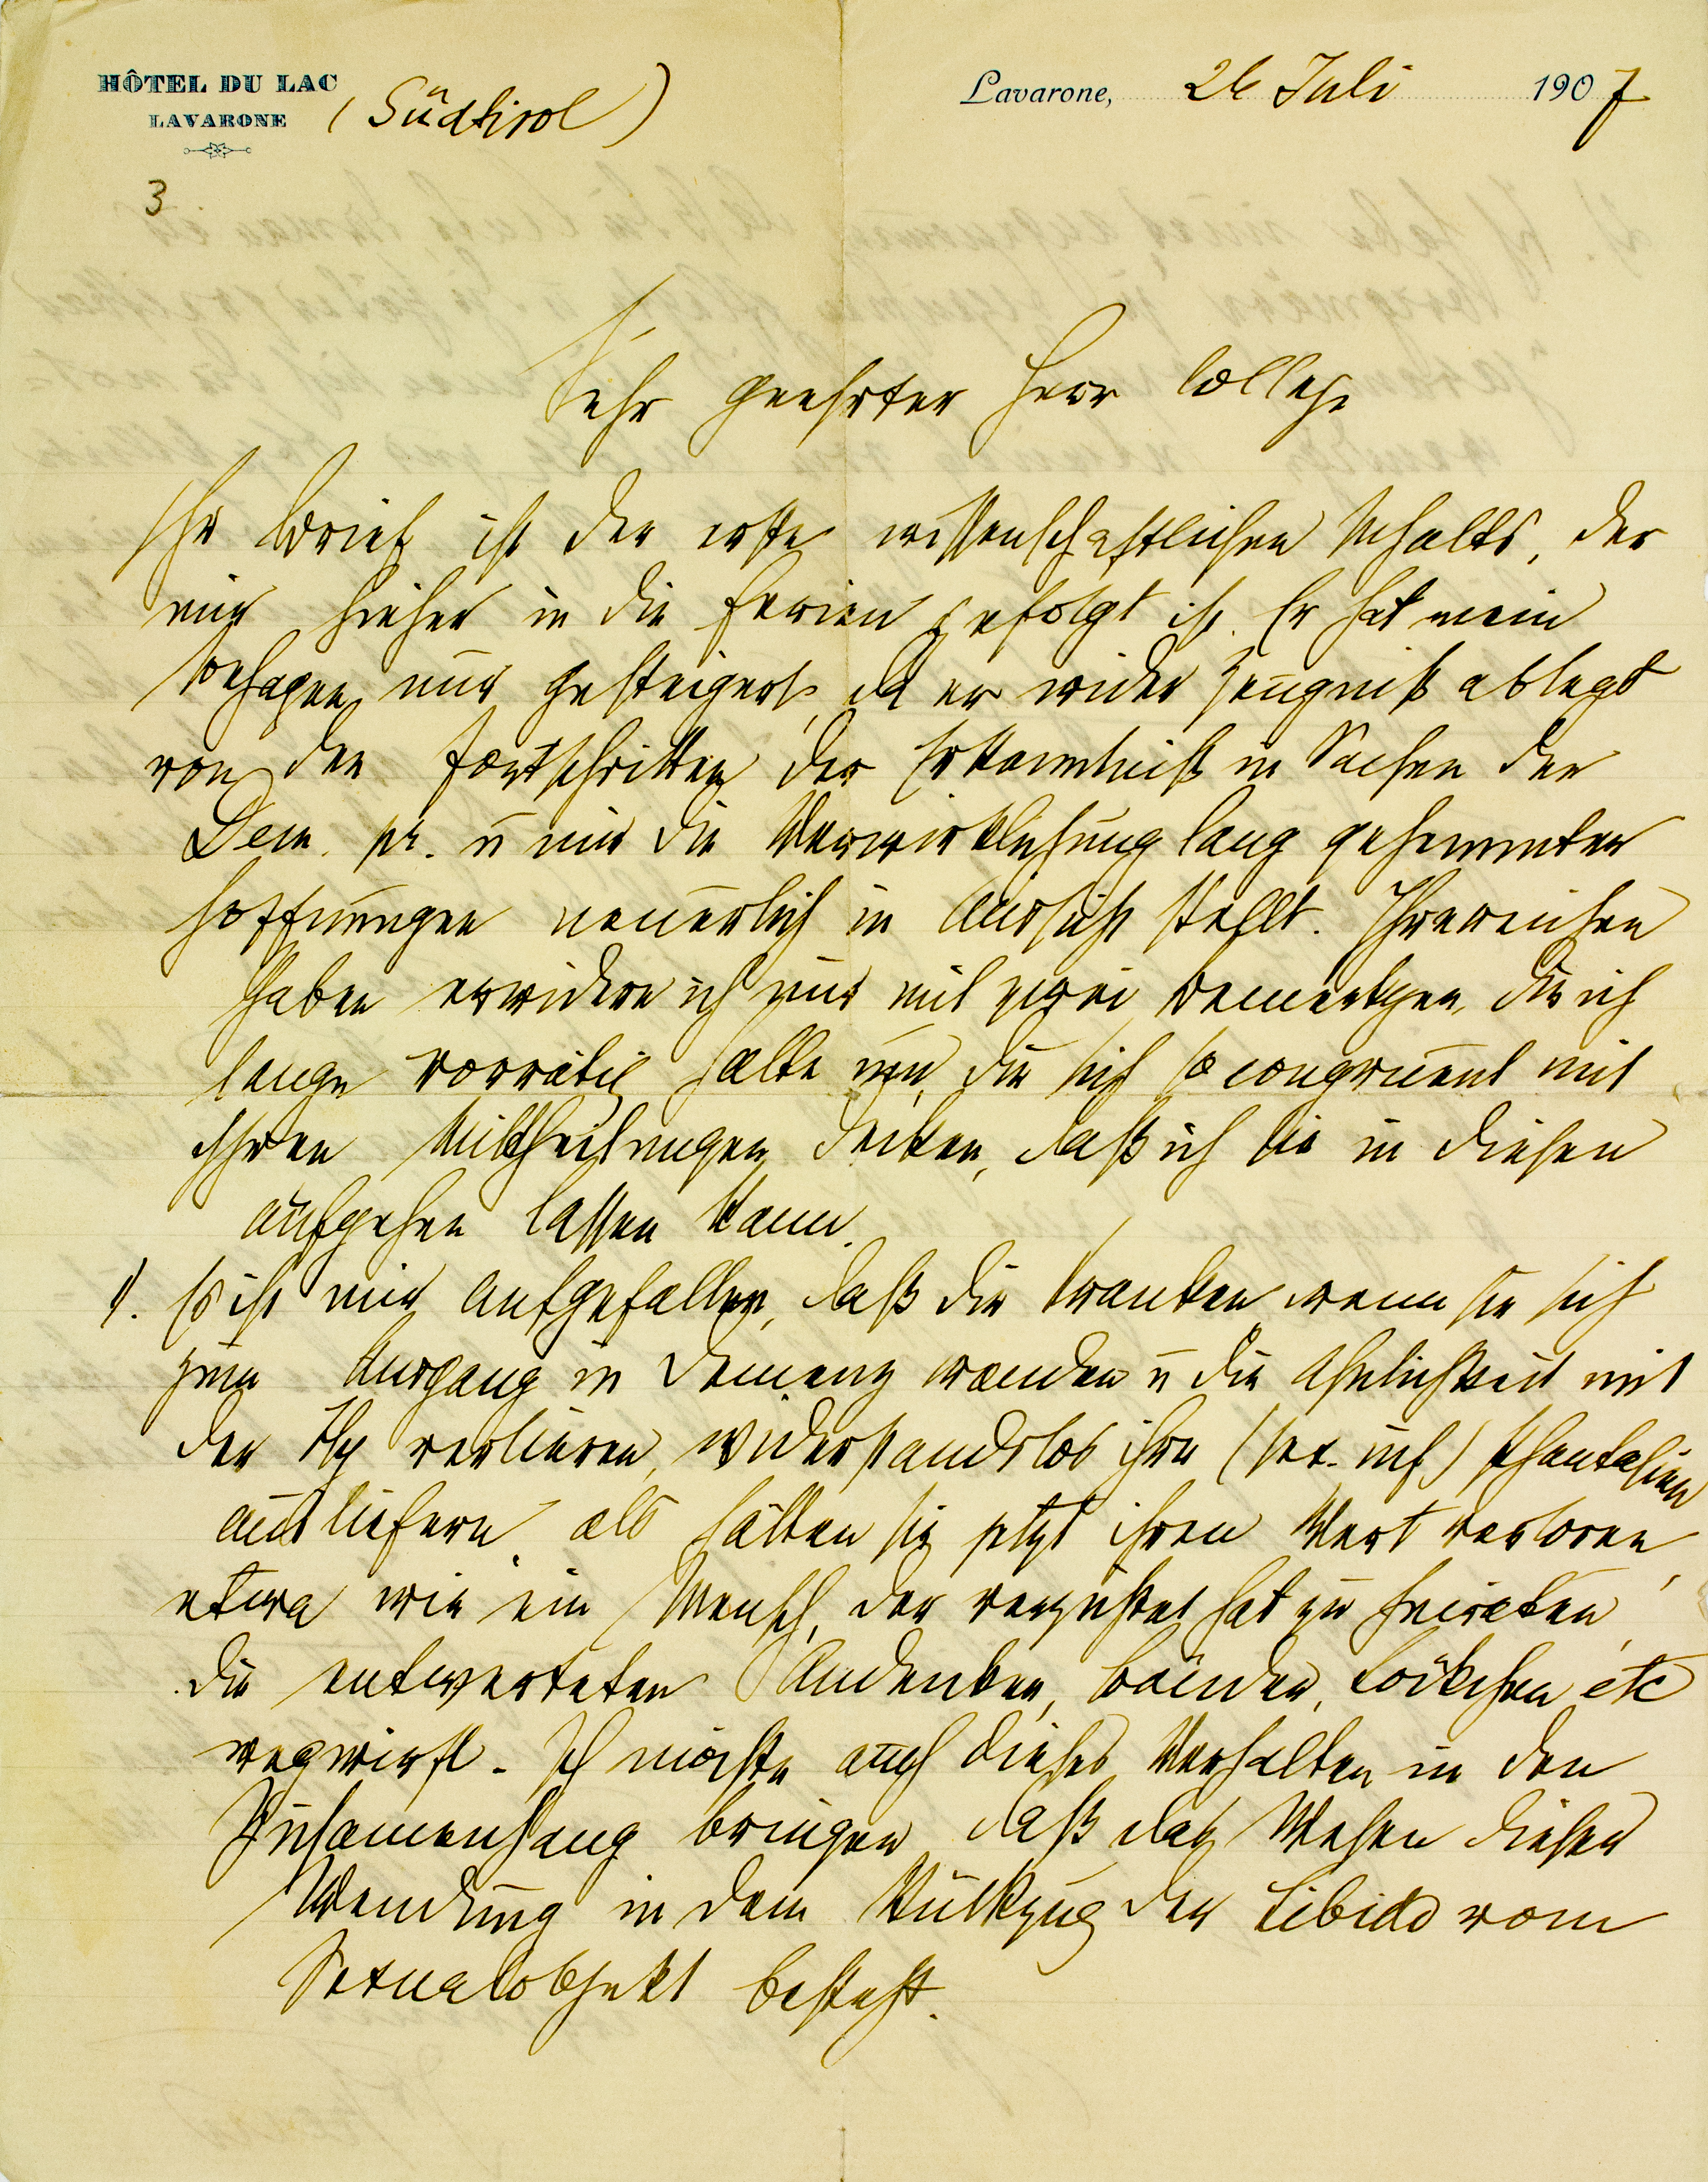 HÔTEL DU LAC
LAVARONE
(Südtirol)
Lavarone, 26 Juli 1907
3
Sehr geehrter Herr College
Ihr Brief ist der erste wissenschaftlichen Inhalts, der
mir hieher in die Ferien gefolgt ist. Er hat mein
Behagen nur gesteigert, da er wider Zeugniß ablegt
von den Fortschritten der Erkenntniß in Sachen der
Dem. pr. u mir die Verwirklichung lang gehemmter
Hoffnungen neuerlich in Aussicht stellt. Ihre reichen
Gaben erwidere ich nur mit zwei Bemerkgen, die ich
lange vorrätig halte und die sich so congruent mit
Ihren Mittheilungen decken, daß ich sie in diesen
aufgehen lassen kann.
1). Es ist mir aufgefallen, daß die Kranken wenn sie sich
zum Ausgang in Demenz wenden u die Ähnlichkeit mit
der Hy verlieren, widerstandslos ihre (sex. inf.) Phantasien
ausliefern, als hätten sie jetzt ihren Wert verloren,
etwa wie ein Mensch, der verzichtet hat zu heiraten,
die entwerteten Andenken, Bänder, Löckchen etc
wegwirft. Ich möchte auch dieses Verhalten in den
Zusamenhang bringen daß das Wesen dieser
Wendung in dem Rückzug der Libido vom
Sexualobjekt besteht.